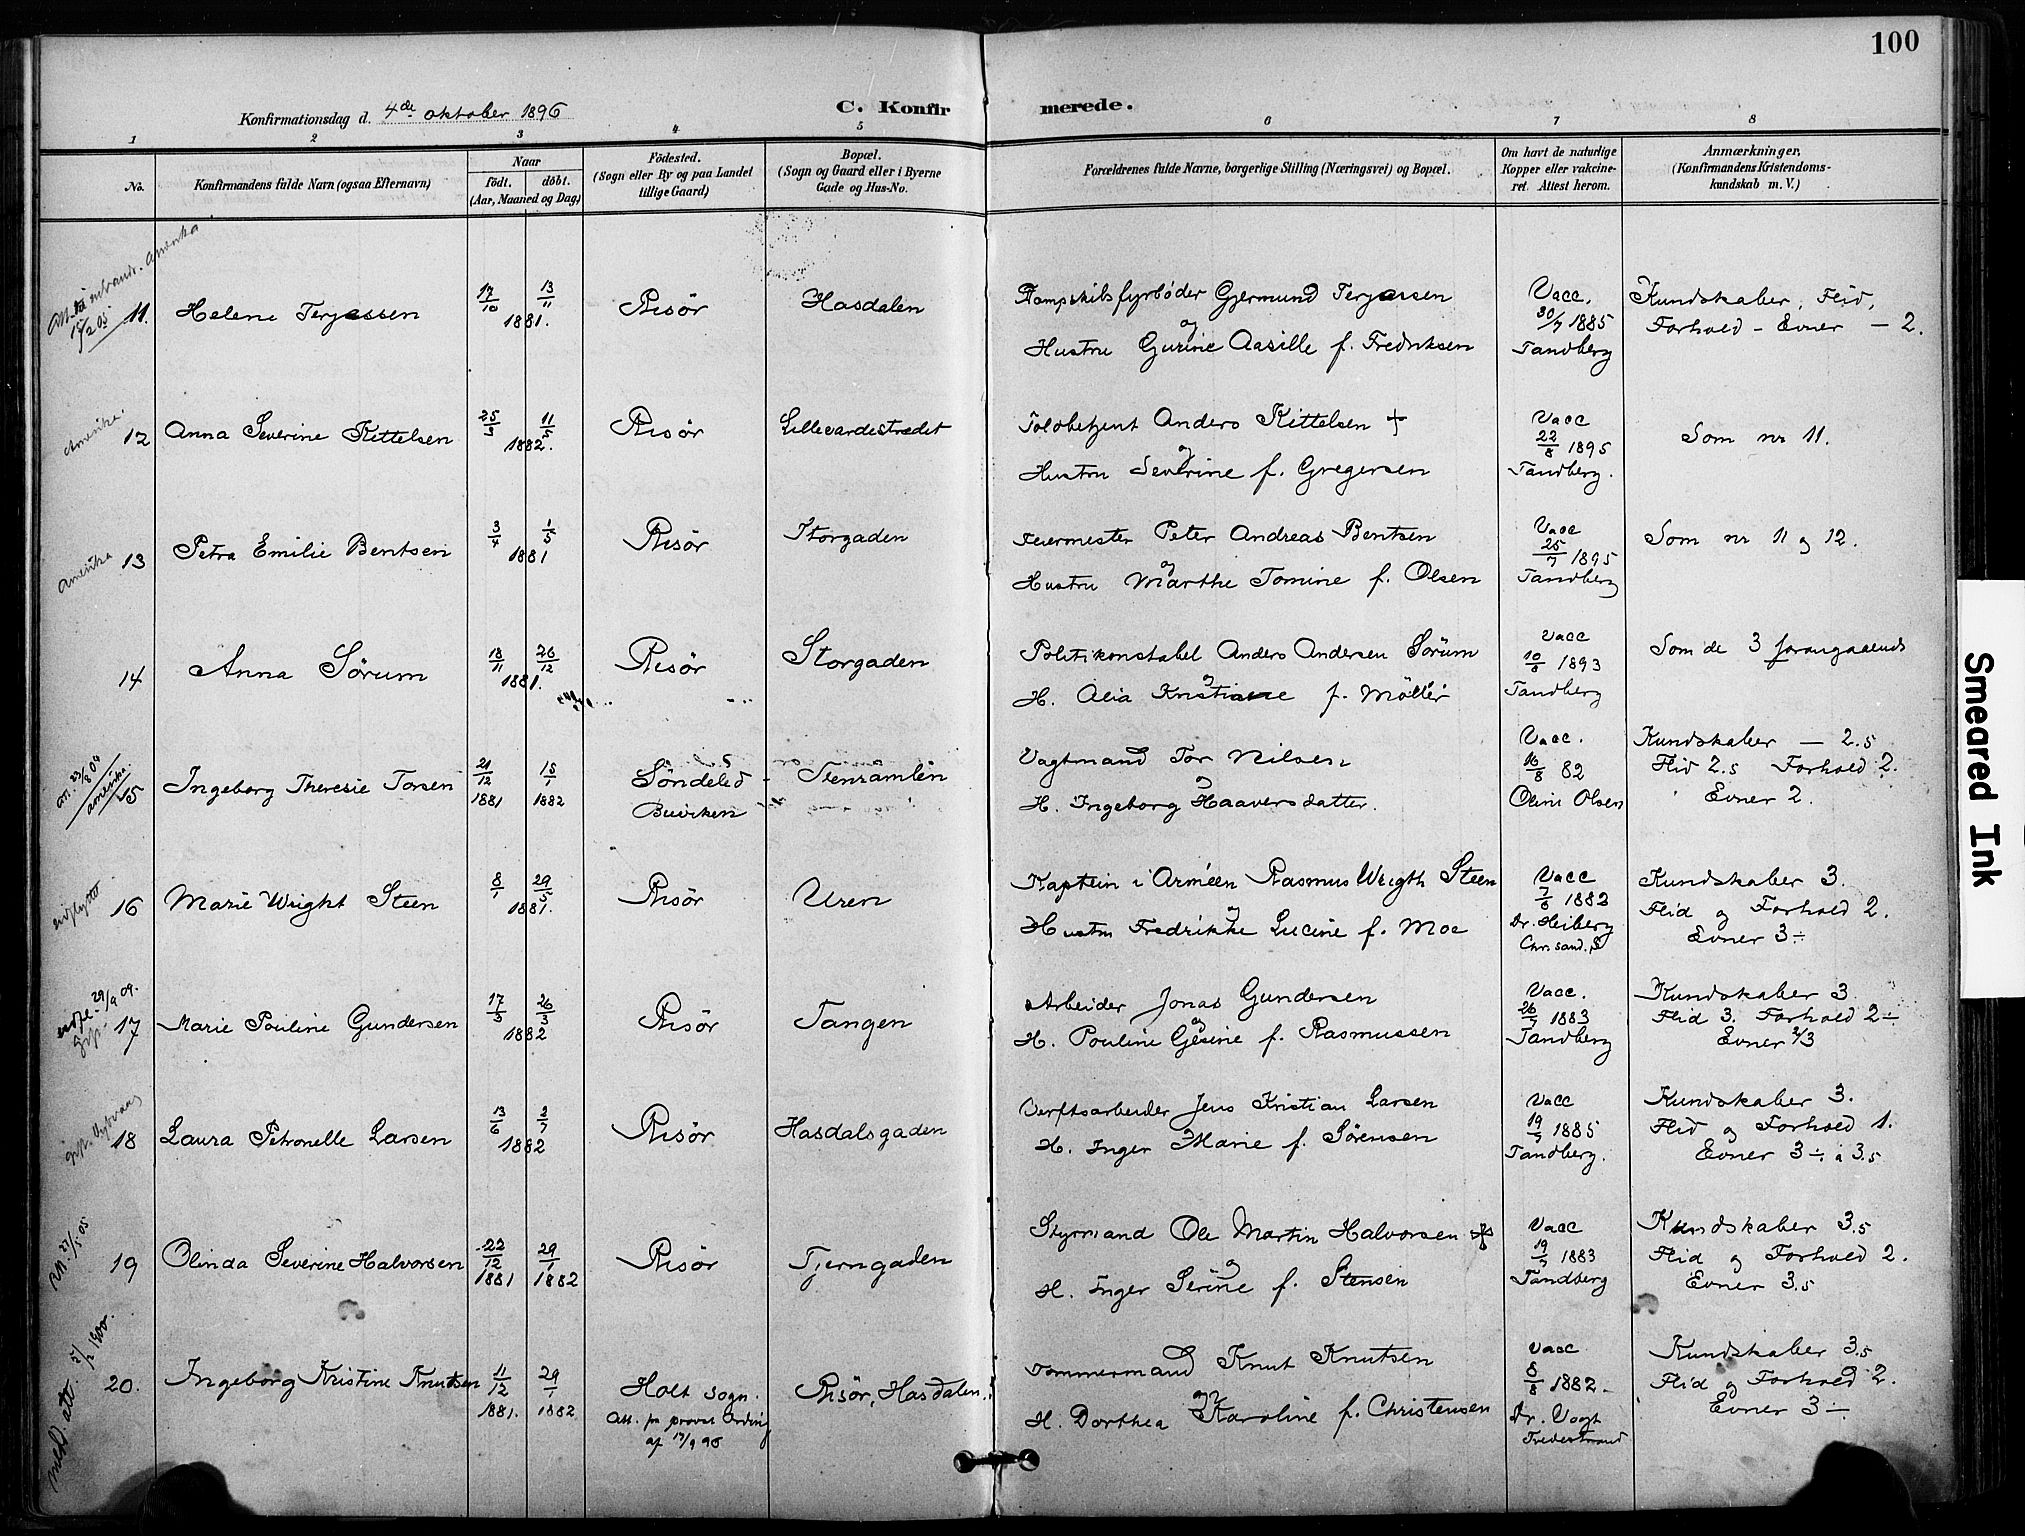 100
Konfirmationsdag d. 4de oktober 1896
C. Konfirmerede.
1 2 3 4 5 6 7 8
No.
Konfirmandens fulde Navn (ogsaa Efternavn)
Naar
födt. döbt.
(Aar, Maaned og Dag)
Födested.
(Sogn eller By og paa Landet
tillige Gaard)
Bopæl.
(Sogn og Gaard eller i Byerne
Gade og Hus-No.
Forældrenes fulde Navne, borgerlige Stilling (Næringsvei) og Bopæl.
Om havt de naturlige
Kopper eller vakcine-
ret. Attest herom.
Anmærkninger,
(Konfirmandens Kristendoms-
kundskab m. V.)
Amerika
11. Helene Terjessen 17/10 13/11 1881. Risör Hasdalen
Gjermund Terjessen
og
Hustru Gurine Aasille f. Fredriksen
Vacc.
30/7 1885
Tandberg
Kundskaber, Flid,
Forhold - Evner - 2.
Amerika.
12 Anna Severine Kittelsen 25/3 11/5 1882. Risör Lillevardestrædet
Toldbetjent Anders Kittelsen +
og
Hustru Severine f. Gregersen
Vacc
22/8 1895
Tandberg.
Som nr 11.
Amerika
13 Petra Emilie Bentsen 3/4 1/5 1881 Risör Storgaden
Feiermester Peter Andreas Bentsen
og
Hustru Marthe Tomine f. Olsen
Vacc
25/7 1895
Tandberg
Som nr 11 og 12.
14 Anna Sörum 18/11 26/12 1881. Risör Storgaden
Politikonstabel Anders Andersen Sörum
og
H. Alia Kristiane f. Möller
Vacc
10/8 1893
Tandberg
Som de 3 foregaaende
23/8 04
amerika.
15 Ingeborg Theresie Torsen 21/12 1881 15/1 1882 Söndeled
Buviken
Vagtmand Tor Nilsen
og
H. Ingeborg Haaversdatter.
Vacc.
16/8 82
Oline Olsen
Kundskaber - 2.5
Flid 2.5 Forhold 2.
Evner 2.
udflyttet
16 Marie Wright Steen 8/1 29/5 1881. Risör Uren
Kaptein i Arméen Rasmus Wrigth Steen
og
Hustru Fredrikke Lucine f. Moe
Vacc
7/6 1882
Dr. Heiberg
Chr.sand. S
Kundskaber 3.
Flid og Forhold 2.
Evner 3÷
29/9 09.
17 Marie Pouline Gundersen 17/3 26/3 1882 Risör Tangen
Arbeider Jonas Gundersen
og
H. Pouline Gesine f. Rasmussen
Vacc.
26/7 1883
Tandberg
Kundskaber 3
Flid 3. Forhold 2÷
Evner 2/3
18 Laura Petronelle Larsen 13/6 2/7 1882 Risör Hasdalsgaden
Verftsarbeider Jens Kristian Larsen
H. Inger Marie f. Sörensen
Vacc
19/7 1885
Tandberg.
Kundskaber 3.
Flid og Forhold 1.
Evner 3÷ à 3.5
19 Olinda Severine Halvorsen 22/12 1881 29/1 1882 Risör Tjerngaden
Styrmand Ole Martin Halvorsen +
og
H. Inger Serine f. Stensen
Vacc
19/7 1883
Tandberg
Kundskaber 3.5
Flid og Forhold 2.
Evner 3.5
med. att. 5/2 1900.
20. Ingeborg Kristine Knutsen 11/12 1881. 29/1 1882 Holt sogn.
Risör, Hasdalen.
Tömmermand Knut Knutsen
og
H. Dorthea Karoline f. Christensen
Vacc
8/8 1882
Dr. Vogt
Kundskaber 3.5
Flid og Forhold 2.
Evner 3÷
Smeared Ink